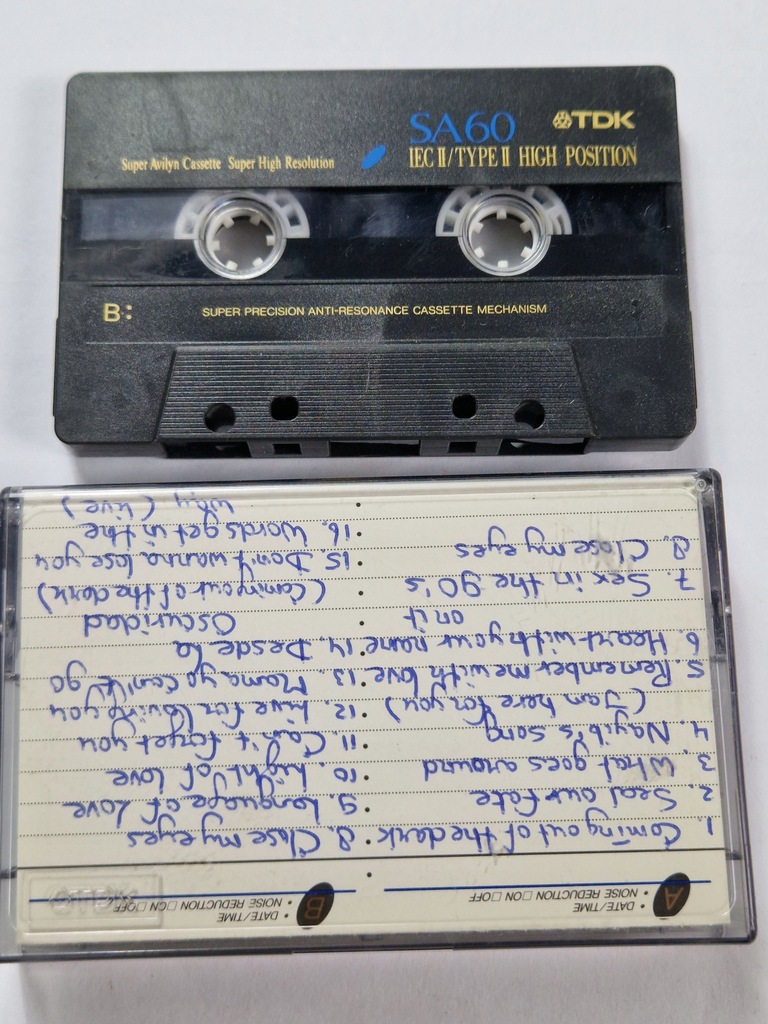 SA60 TDK
Super Avilyn Cassette Super High Resolution IEC II/TYPE II HIGH POSITION
B:
SUPER PRECISION ANTI-RESONANCE CASSETTE MECHANISM
A
• DATE/TIME
• NOISE REDUCTION □ ON □ OFF
1. Coming out of the dark
2. Seal our fate
3. What goes around
4. Nayib's song
(Iam here for you)
5. Remember me with love
6. Heart with your name
on it
7. Sex in the 90's
8. Close my eyes
B
• DATE/TIME
• NOISE REDUCTION □ ON □ OFF
8. Close my eyes
9. Language of Love
10. Light of love
11. Can't forget you
12. Live for loving you
13. Mama yo can't go
14. Desde la
Oscuridad
(Coming out of the dark)
15. Don't wanna lose you
16. Words get in the
way (live)
TDK